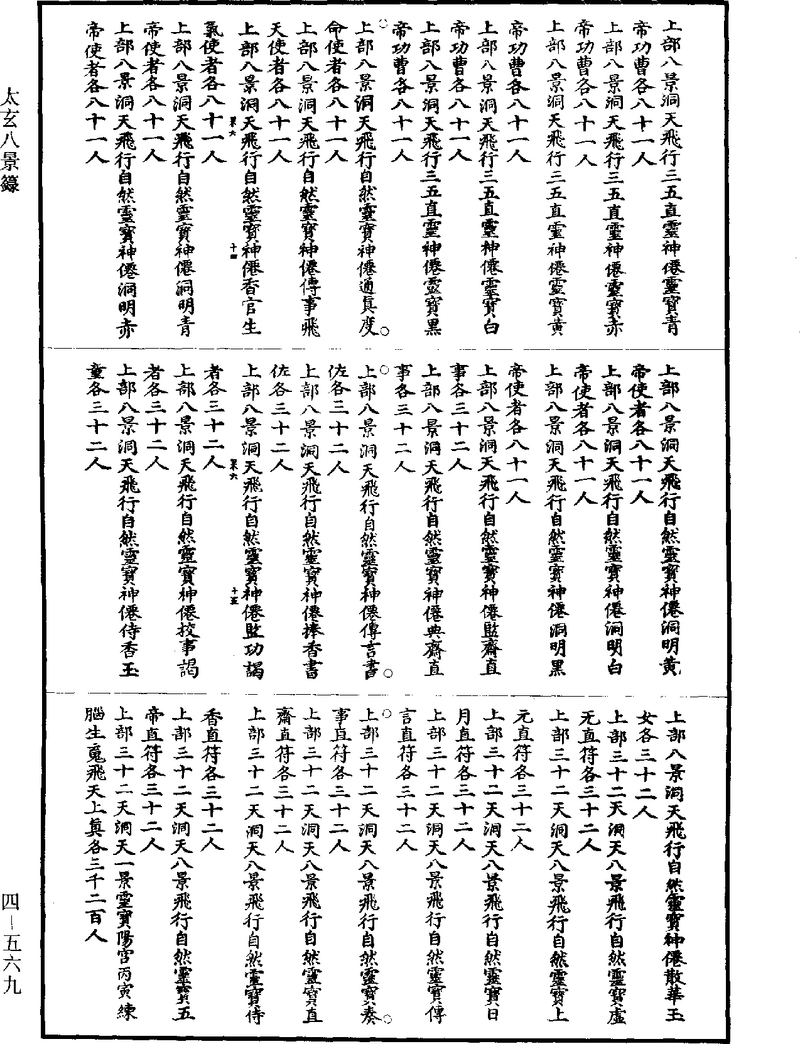 上部八景洞天飛行三五直靈神僊靈寶青
帝功曹各八十一人
上部八景洞天飛行三五直靈神僊靈寶赤
帝功曹各八十一人
上部八景洞天飛行三五直靈神僊靈寶黄
帝功曹各八十一人
上部八景洞天飛行三五直靈神僊靈寶白
帝功曹各八十一人
上部八景洞天飛行三五直靈神僊靈寶黑
帝功曹各八十一人
上部八景洞天飛行自然靈寶神僊通真度
命使者各八十一人
上部八景洞天飛行自然靈寶神僊傳事飛
天使者各八十一人
上部八景洞天飛行自然靈寶神僊香官生
氣使者各八十一人
上部八景洞天飛行自然靈寶神僊洞明青
帝使者各八十一人
上部八景洞天飛行自然靈寶神僊洞明赤
帝使者各八十一人
上部八景洞天飛行自然靈寶神僊洞明黄
帝使者各八十一人
上部八景洞天飛行自然靈寶神僊洞明白
帝使者各八十一人
上部八景洞天飛行自然靈寶神僊洞明黑
帝使者各八十一人
上部八景洞天飛行自然靈寶神僊監齋直
事各三十二人
上部八景洞天飛行自然靈寶神僊典齋直
事各三十二人
上部八景洞天飛行自然靈寶神僊傳言書
佐各三十二人
上部八景洞天飛行自然靈寶神僊捧香書
佐各三十二人
上部八景洞天飛行自然靈寶神僊監功謁
者各三十二人
上部八景洞天飛行自然靈寶神僊挍事謁
者各三十二人
上部八景洞天飛行自然靈寶神僊侍香玉
童各三十二人
上部八景洞天飛行自然靈寶神僊散華玉
女各三十二人
上部三十二天洞天八景飛行自然靈寶虛
无直符各三十二人
上部三十二天洞天八景飛行自然靈寶上
元直符各三十二人
上部三十二天洞天八景飛行自然靈寶日
月直符各三十二人
上部三十二天洞天八景飛行自然靈寶傳
言直符各三十二人
上部三十二天洞天八景飛行自然靈寶奏
事直符各三十二人
上部三十二天洞天八景飛行自然靈寶直
齋直符各三十二人
上部三十二天洞天八景飛行自然靈寶侍
香直符各三十二人
上部三十二天洞天八景飛行自然靈寶五
帝直符各三十二人
上部三十二天洞天一景靈寶陽宮丙寅練
腦生寬飛天上真各三千二百人
太玄八景籙
四－五六九